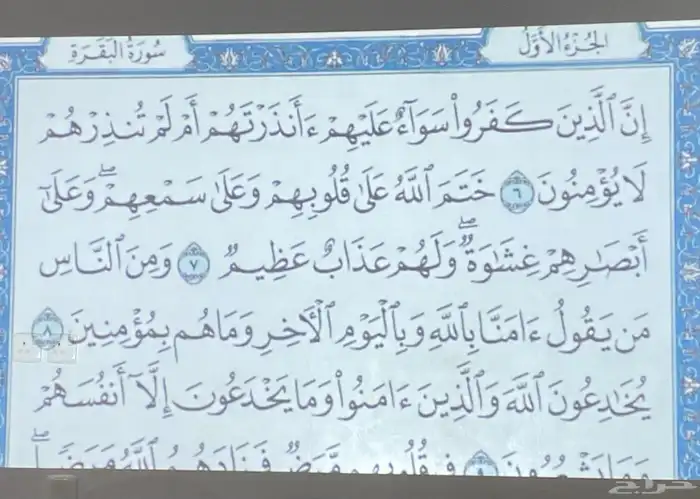 الجُزْءُ الأَوَّلُ
سُورَةُ البَقَرَةِ
إِنَّ ٱلَّذِينَ كَفَرُواْ سَوَآءٌ عَلَيْهِمْ ءَأَنذَرْتَهُمْ أَمْ لَمْ تُنذِرْهُمْ
لَا يُؤْمِنُونَ ٦ خَتَمَ ٱللَّهُ عَلَىٰ قُلُوبِهِمْ وَعَلَىٰ سَمْعِهِمْۖ وَعَلَىٰٓ
أَبْصَٰرِهِمْ غِشَٰوَةٌۖ وَلَهُمْ عَذَابٌ عَظِيمٌ ٧ وَمِنَ ٱلنَّاسِ
مَن يَقُولُ ءَامَنَّا بِٱللَّهِ وَبِٱلْيَوْمِ ٱلْأَخِرِ وَمَا هُم بِمُؤْمِنِينَ ٨
يُخَٰدِعُونَ ٱللَّهَ وَٱلَّذِينَ ءَامَنُواْ وَمَا يَخْدَعُونَ إِلَّآ أَنفُسَهُمْ
وَمَا يَشْعُرُونَ ٩ فِي قُلُوبِهِم مَّرَضٌ فَزَادَهُمُ ٱللَّهُ مَرَضًاۖ
حراج